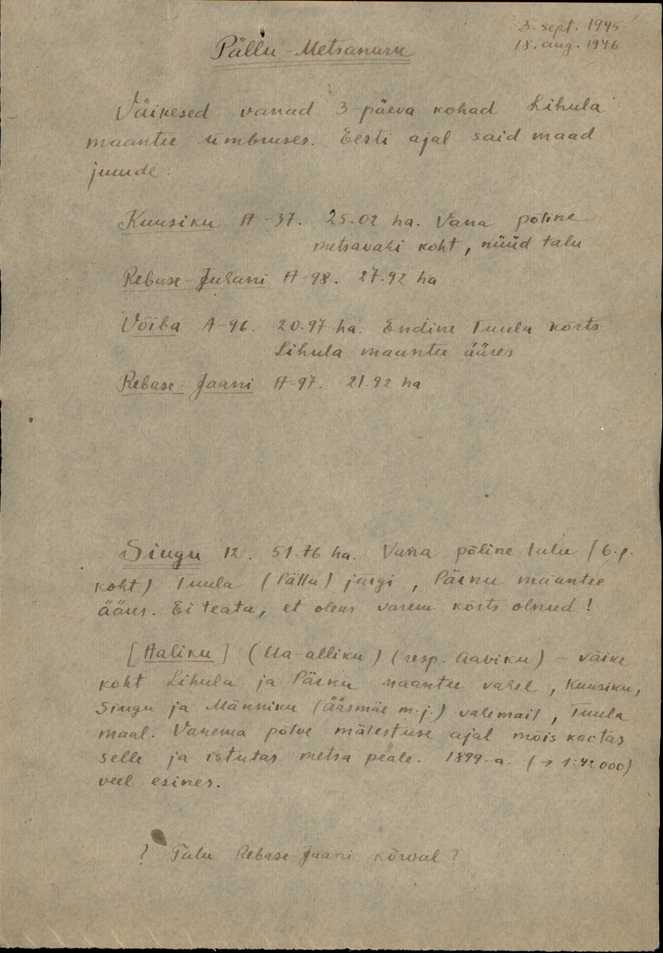 3. sept. 1945
18. aug. 1946
Pällu-Metsanuru
Väikesed vanad 3-päeva kohad Lihula
maantee ümbruses. Eesti ajal said maad
juurde:
Kuusiku A-37. 25.02 ha. Vana põline
metsavahi koht, nüüd talu
Rebase-Juhani A-98. 27.92 ha
Võiba A-96. 20.97 ha. Endine Tuula kõrts
Lihula maantee ääres
Rebase-Jaani A-97. 21.92 ha
Singu 12. 51.76 ha. Vana põline talu (6.p.
koht) Tuula (Pällu) järgi, Pärnu maantee
ääres. Ei teata, et oleks varem kõrts olnud!
[Haliku] (Ua-alliku) (resp. Aaviku) – väike
koht Lihula ja Pärnu maantee vahel, Kuusiku,
Singu ja Männiku (Ääsmäe m.j.) vahemail, Tuula
maal. Vanema põlve mälestuse ajal mõis kaotas
selle ja istutas metsa peale. 1899. a. (→ 1:42000)
veel esines.
? Talu Rebase Jaani kõrval?